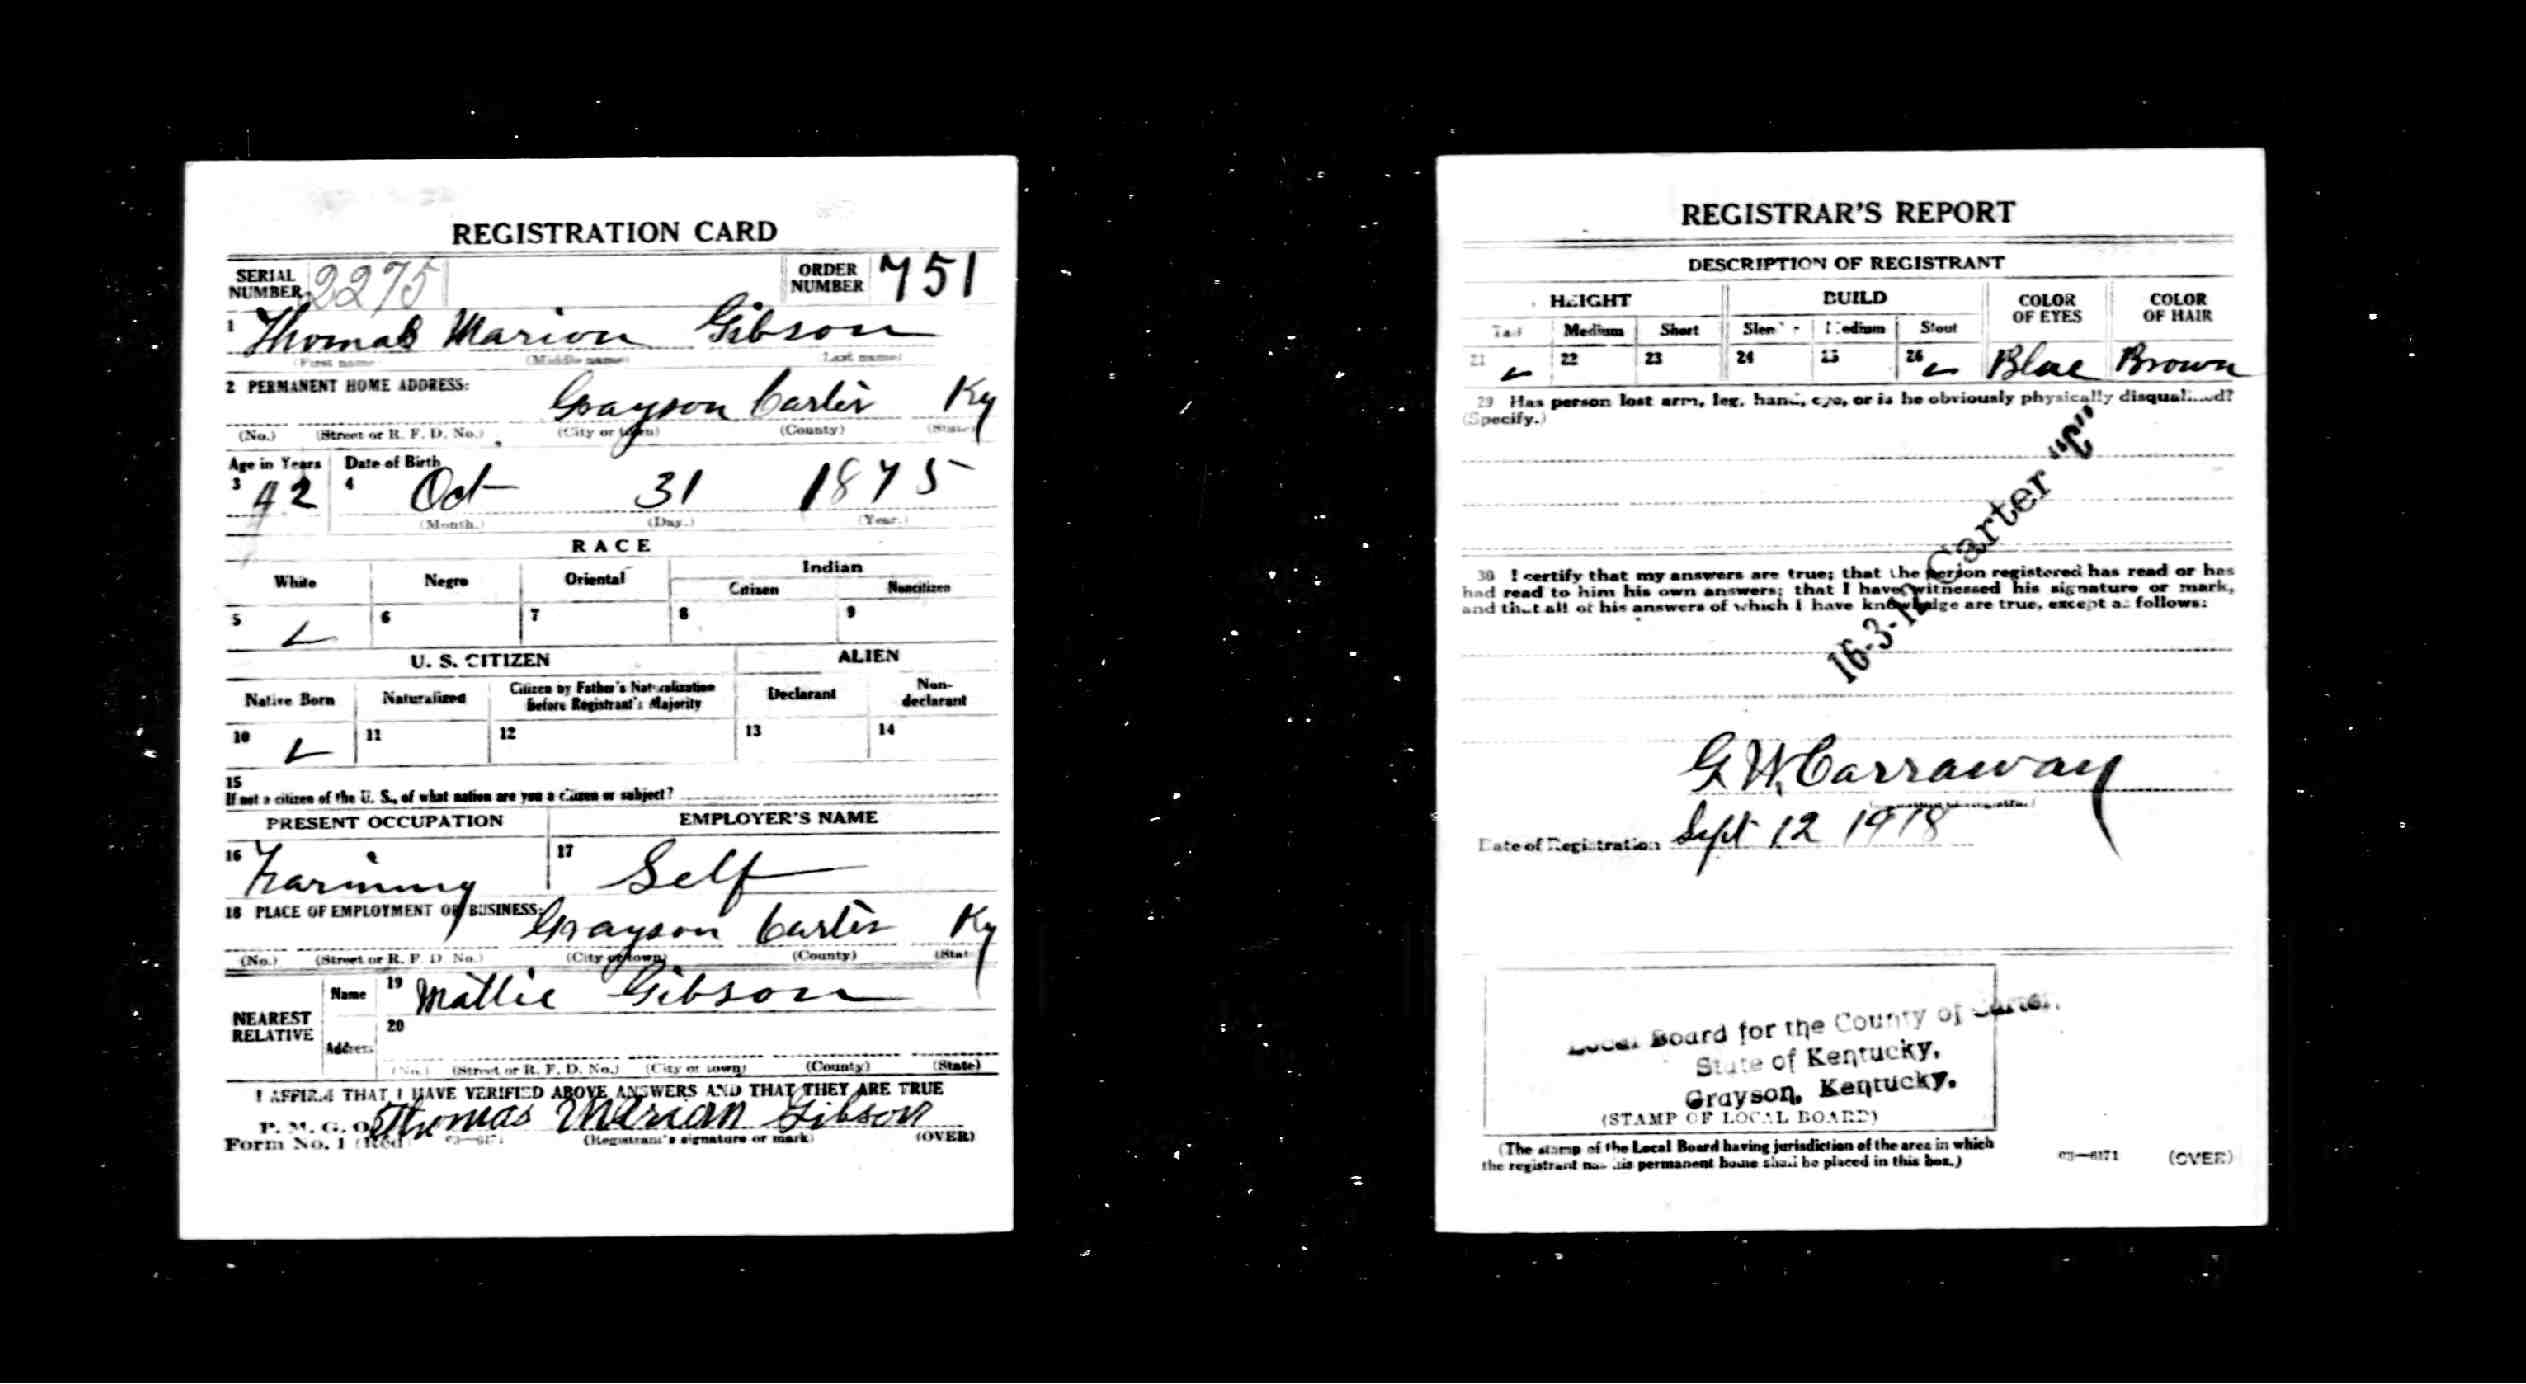 REGISTRATION CARD
SERIAL NUMBER 2275 ORDER NUMBER 751
1 Thomas Marion Gibson
(First name) (Middle name) (Last name)
2 PERMANENT HOME ADDRESS:
Grayson Carter Ky
(No.) (Street or R. F. D. No.) (City or town) (County) (State)
Age in Years Date of Birth
3 42 4 Oct 31 1875
(Month.) (Day.) (Year.)
RACE
White Negro Oriental Indian
Citizen Noncitizen
5 ✓ 6 7 8 9
U. S. CITIZEN ALIEN
Native Born Naturalized Citizen by Father's Naturalization before Registrant's Majority Declarant Non-declarant
10 ✓ 11 12 13 14
15
If not a citizen of the U. S., of what nation are you a citizen or subject?
PRESENT OCCUPATION EMPLOYER'S NAME
16 Farming 17 Self
18 PLACE OF EMPLOYMENT OR BUSINESS:
Grayson Carter Ky
(No.) (Street or R. F. D. No.) (City or town) (County) (State)
NEAREST RELATIVE Name 19 Mattie Gibson
Address 20
(No.) (Street or R. F. D. No.) (City or town) (County) (State)
I AFFIRM THAT I HAVE VERIFIED ABOVE ANSWERS AND THAT THEY ARE TRUE
P. M. G. O. Thomas Marian Gibson
Form No. 1 (Red) 03—6171 (Registrant's signature or mark) (OVER)
REGISTRAR'S REPORT
DESCRIPTION OF REGISTRANT
HEIGHT BUILD COLOR OF EYES COLOR OF HAIR
Tall Medium Short Slender Medium Stout
21 ✓ 22 23 24 25 26 ✓ Blue Brown
29 Has person lost arm, leg, hand, eye, or is he obviously physically disqualified?
(Specify.)
16-3-12 Carter "C"
30 I certify that my answers are true; that the person registered has read or has
had read to him his own answers; that I have witnessed his signature or mark,
and that all of his answers of which I have knowledge are true, except as follows:
G. W. Carraway
Date of Registration Sept 12 1918
Local Board for the County of Carter,
State of Kentucky,
Grayson, Kentucky.
(STAMP OF LOCAL BOARD)
(The stamp of the Local Board having jurisdiction of the area in which
the registrant has his permanent home shall be placed in this box.)
03—6171 (OVER)